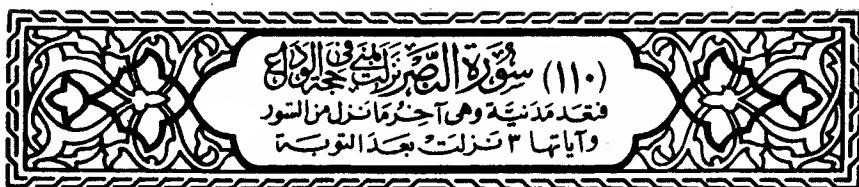 (١١٠) سُورَةُ النَّصْرِ نَزَلَتْ بِمِنًى فِي حَجَّةِ الوَدَاعِ
فتعَد مَدَنيَّة وهى آخِرُ مَا نَزل مِنَ السّور
وآياتها ٣ نَزلَتْ بعدَ التوبَة